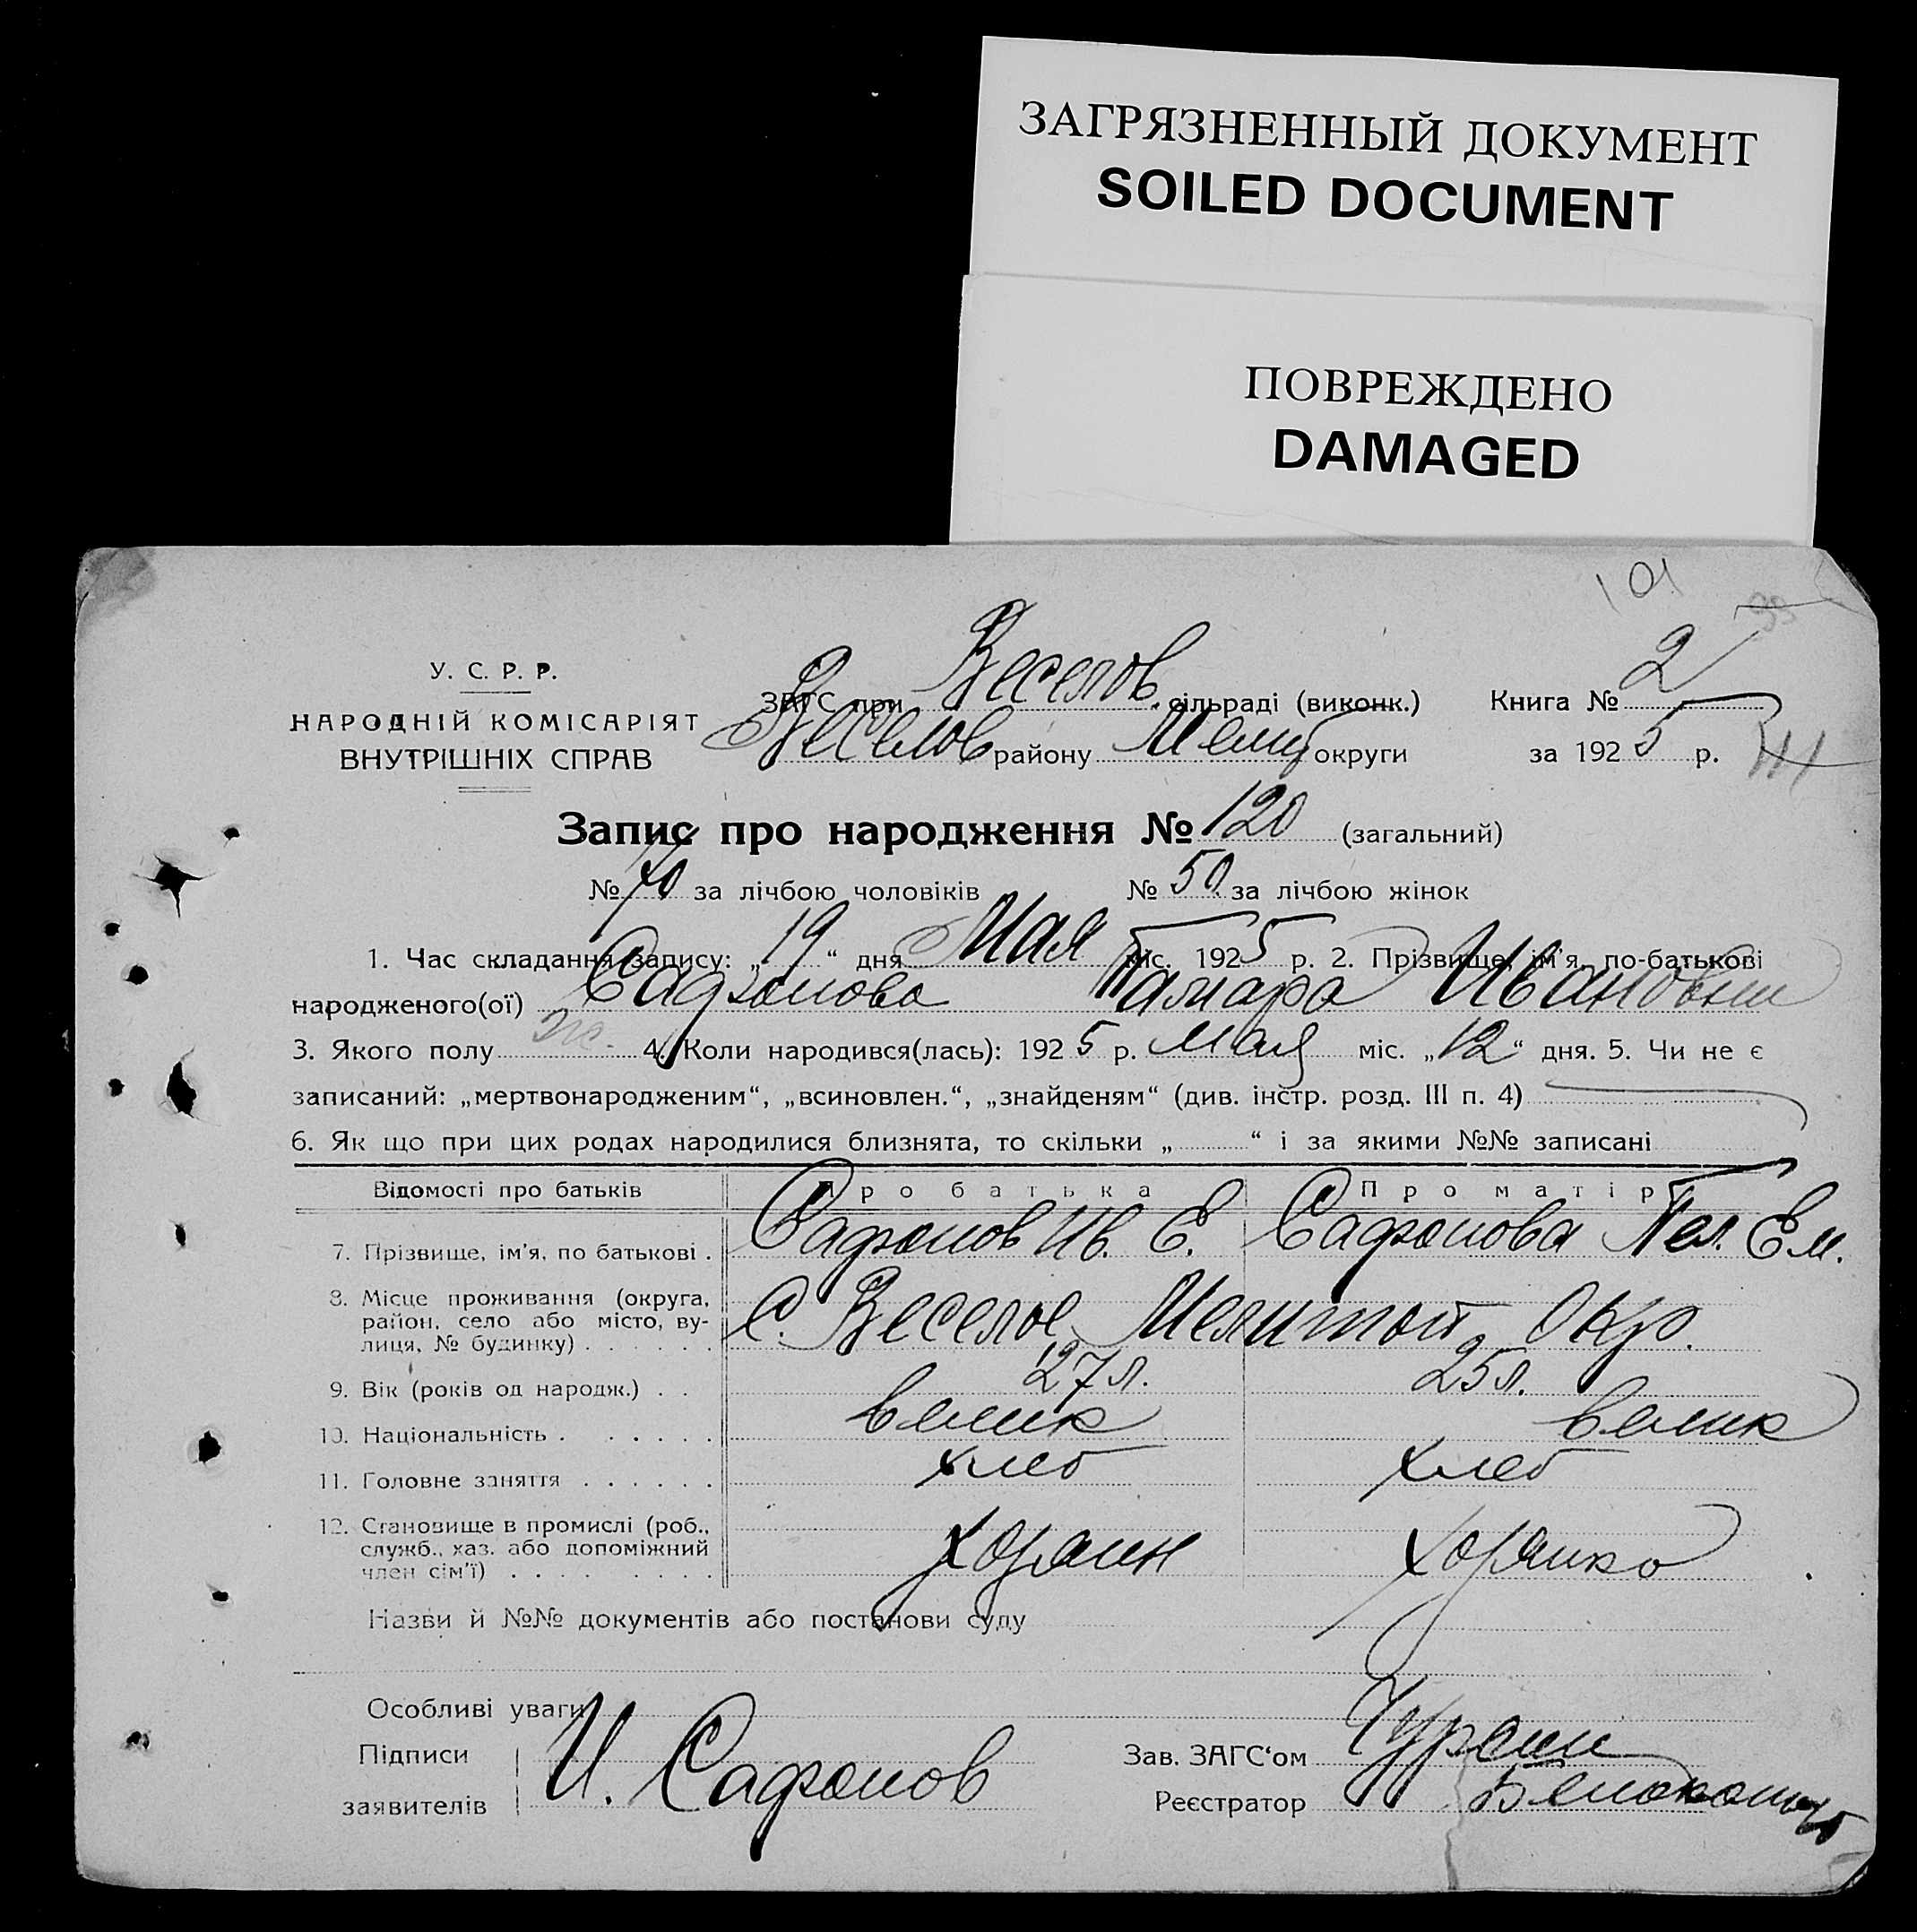 ЗАГРЯЗНЕННЫЙ ДОКУМЕНТ
SOILED DOCUMENT
ПОВРЕЖДЕНО
DAMAGED
101
У. С. Р. Р.
НАРОДНІЙ КОМІСАРІЯТ
ВНУТРІШНІХ СПРАВ
ЗАГС при Веселов. сільраді (виконк.) Книга № 2
Веселов району Мелит округи за 1925 р.
Запис про народження № 120 (загальний)
№ 70 за лічбою чоловіків № 50. за лічбою жінок
1. Час складання запису: „19“ дня Мая міс. 1925 р. 2. Прізвище, ім'я, по-батькові
народженого(ої) Сафонова Тамара Ивановни
3. Якого полу ж. 4. Коли народився(лась): 1925 р. Мая міс. „12“ дня. 5. Чи не є
записаний: „мертвонародженим“, „всиновлен.“, „знайденям“ (див. інстр. розд. III п. 4)
6. Як що при цих родах народилися близнята, то скільки „ “ і за якими №№ записані
Відомості про батьків Про батька Про матір
7. Прізвище, ім'я, по батькові . Сафонов Ив. Е. Сафонова Пел. Ем.
8. Місце проживання (округа, район, село або місто, ву-
лиця, № будинку) . . . . . . С. Веселое Мелитоп. Окр.
9. Вік (років од народж.) . . 27 л. 25 л.
10. Національність . . . . . . велик велик
11. Головне заняття . . . . . . хлеб хлеб
12. Становище в промислі (роб.,
служб., хаз. або допоміжний
член сім'ї) . . . . . . . .
Назви й №№ документів або постанови суду
Особливі уваги
Підписи
заявителів И. Сафонов
Зав. ЗАГС'ом
Реєстратор